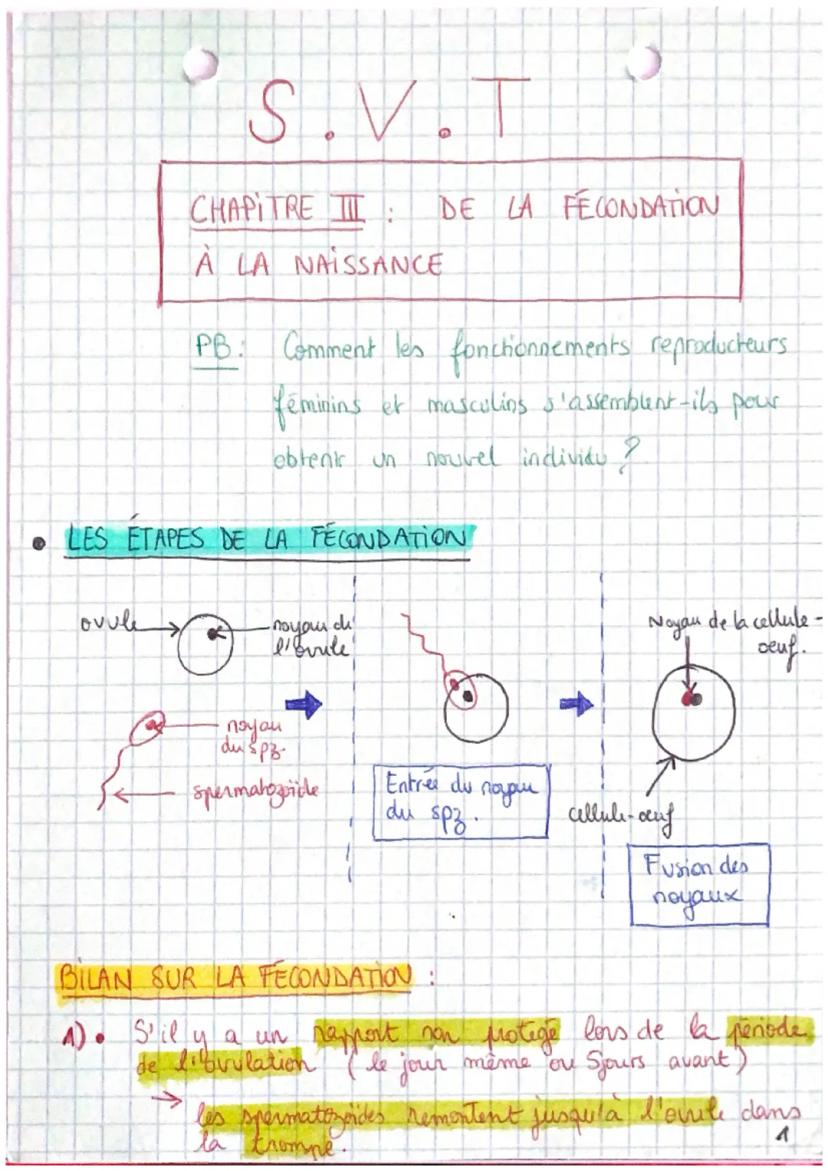 S.V.T
CHAPITRE III : DE LA FÉCONDATION
À LA NAISSANCE
PB: Comment les fonctionnements reproducteurs
féminins et masculins s'assemblent-ils pour
obtenir un nouvel individu ?
• LES ÉTAPES DE LA FÉCONDATION
ovule
noyau de
l'ovule
noyau
du spz.
spermatozoïde
Entrée du noyau
du spz.
Noyau de la cellule-
oeuf.
cellule-oeuf
Fusion des
noyaux
BILAN SUR LA FÉCONDATION :
1) • S'il y a un rapport non protégé lors de la période
de l'ovulation (le jour même ou 5jours avant)
→ les spermatozoïdes remontent jusqu'à l'ovule dans
la trompe.
1